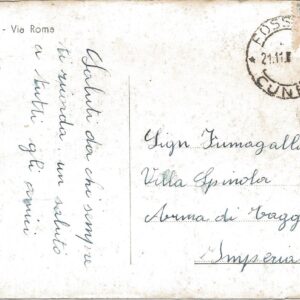 - Via Roma
Saluti da chi sempre
ti ricorda, un saluto
a tutti gli amici
FOSS
21.11
CUN
Sign Fumagall
Villa Spinola
Arma di Tagg
Imperia